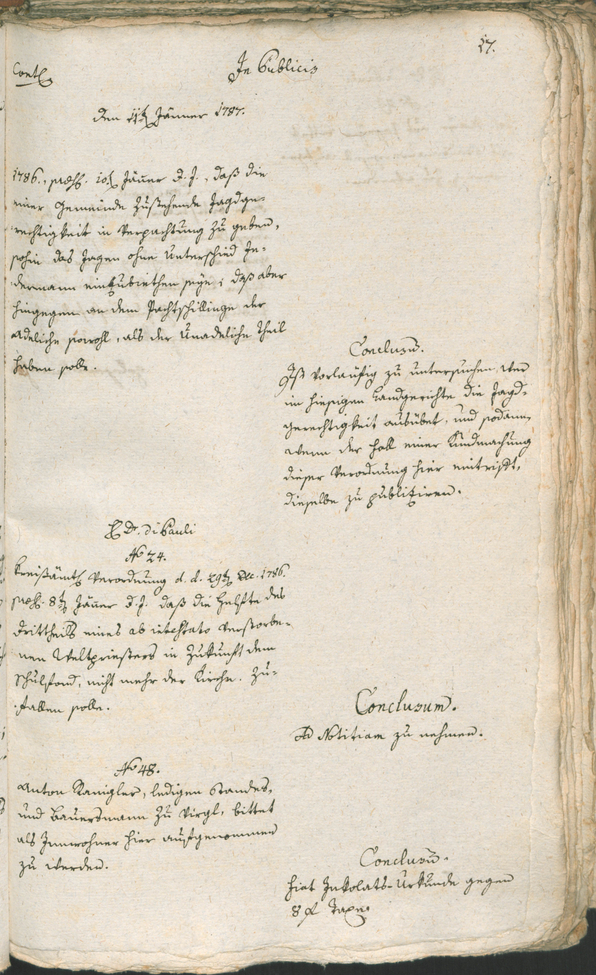 17.
In Publicis
Den 11t Jänner 1787.
1786., praes. 10t Jäner d. J., daß die
einer Gemeinde zustehende Jagdge-
rechtigkeit in Verpachtung zu geben,
sohin das Jagen ohne Unterschied Je-
dermann einzubiethen seye; daß aber
hingegen an dem Pachtschillinge der
adeliche sowohl, als der Unadeliche Theil
haben solle.
Conclusum.
Ist vorläufig zu untersuchen, wer
im hiesigen Landgerichte die Jagd-
gerechtigkeit ausübet, und sodann,
wenn der Fall einer Kundmachung
dieser Verordnung hier eintrift,
dieselbe zu publiziren.
H Dr. di Pauli
No 24.
Kreisämtl Verordnung d. d. 29t Dec. 1786.
praes. 8t Jäner d. J. daß die Helfte des
Drittheils eines ab intestato verstorbe-
nen Weltpriesters in Zukunft dem
Schulfond, nicht mehr der Kirche. Zu-
fallen solle.
Conclusum.
Ad Notitiam zu nehmen.
No 48.
Anton Ranigler, ledigen Standes,
und Bauersmann zu Virgl, bittet
als Innwohner hier aufgenommen
zu werden.
Conclusum.
Fiat Inkolats-Urkunde gegen
8 f Taxe.